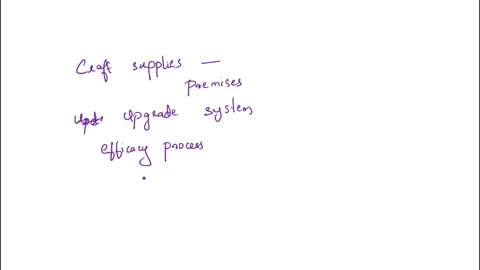 Craft supplies —
premises
upgrade system
efficacy process